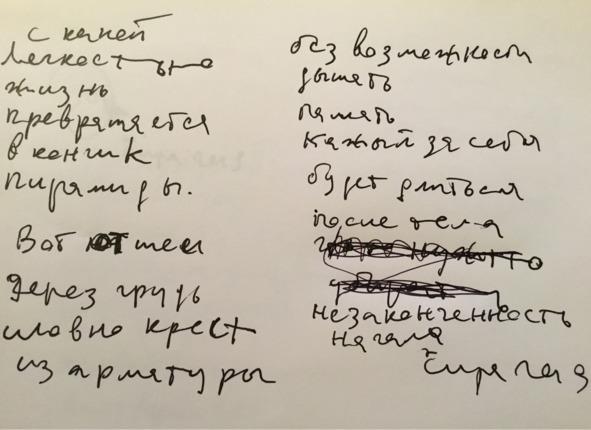 с какой
легкостью
жизнь
превращается
в кончик
пирамиды.
Вот шел
через грудь
словно крест
из арматуры
без возможности
дышать
память
кажый за себя
будет длиться
после тела
незаконченность
начала